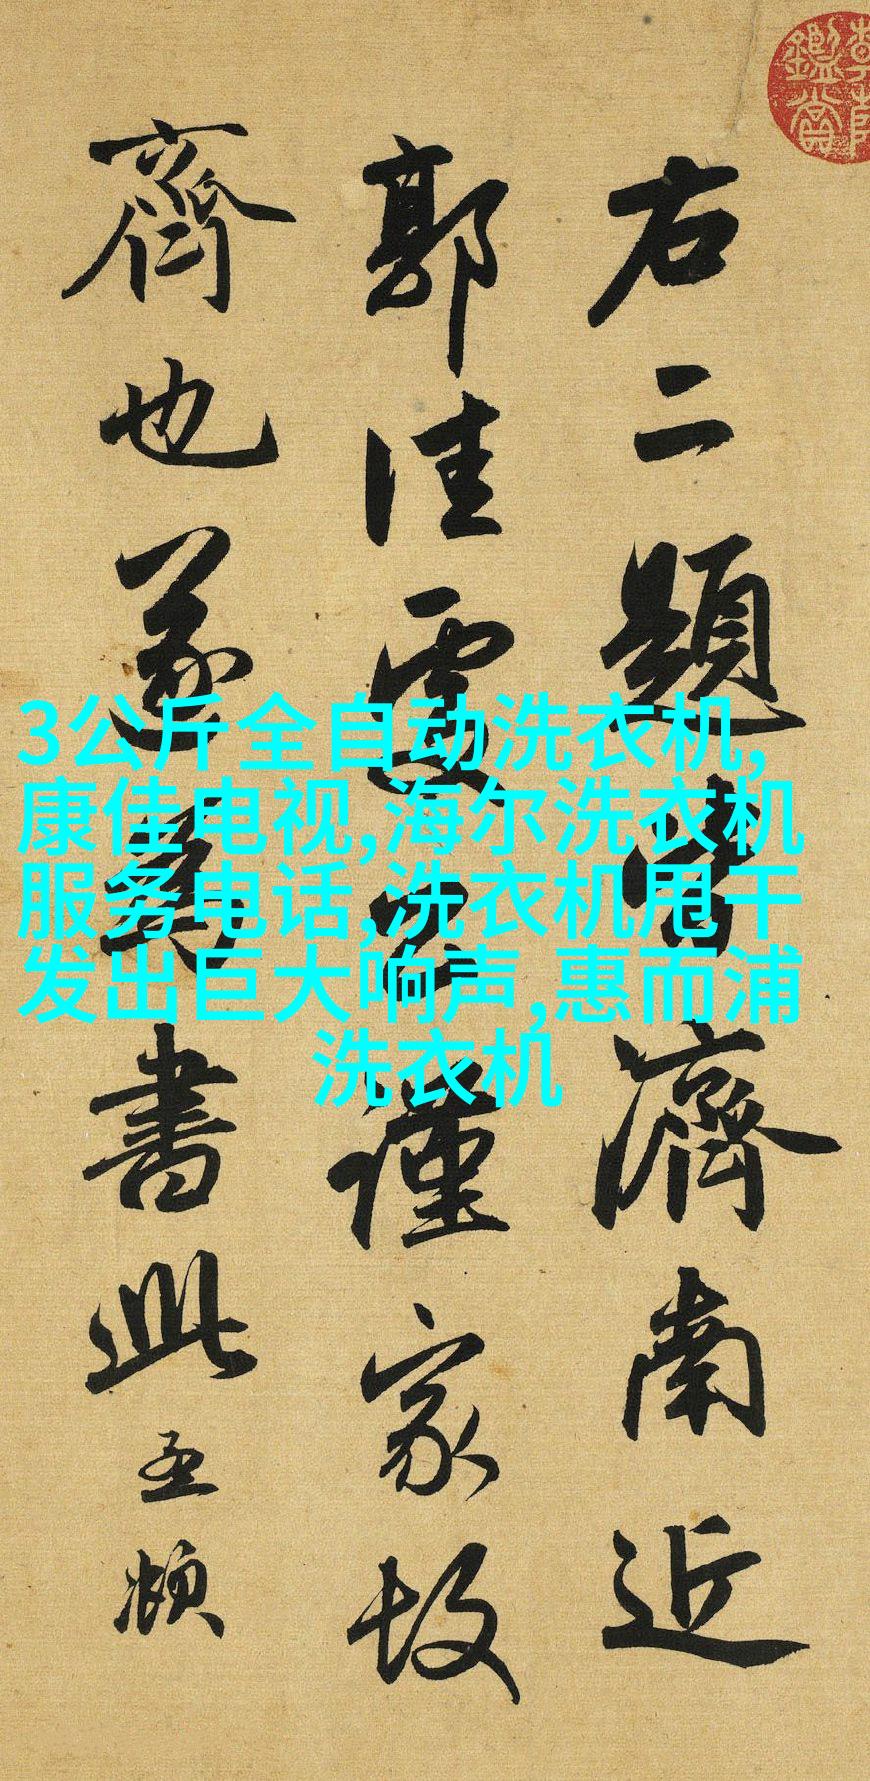 右二題皆濟南近
郭佳處公謹家故
齊也遂書此孟頫
3公斤全自动洗衣机,
康佳电视,海尔洗衣机
服务电话,洗衣机甩干
发出巨大响声,惠而浦
洗衣机
鑑賞